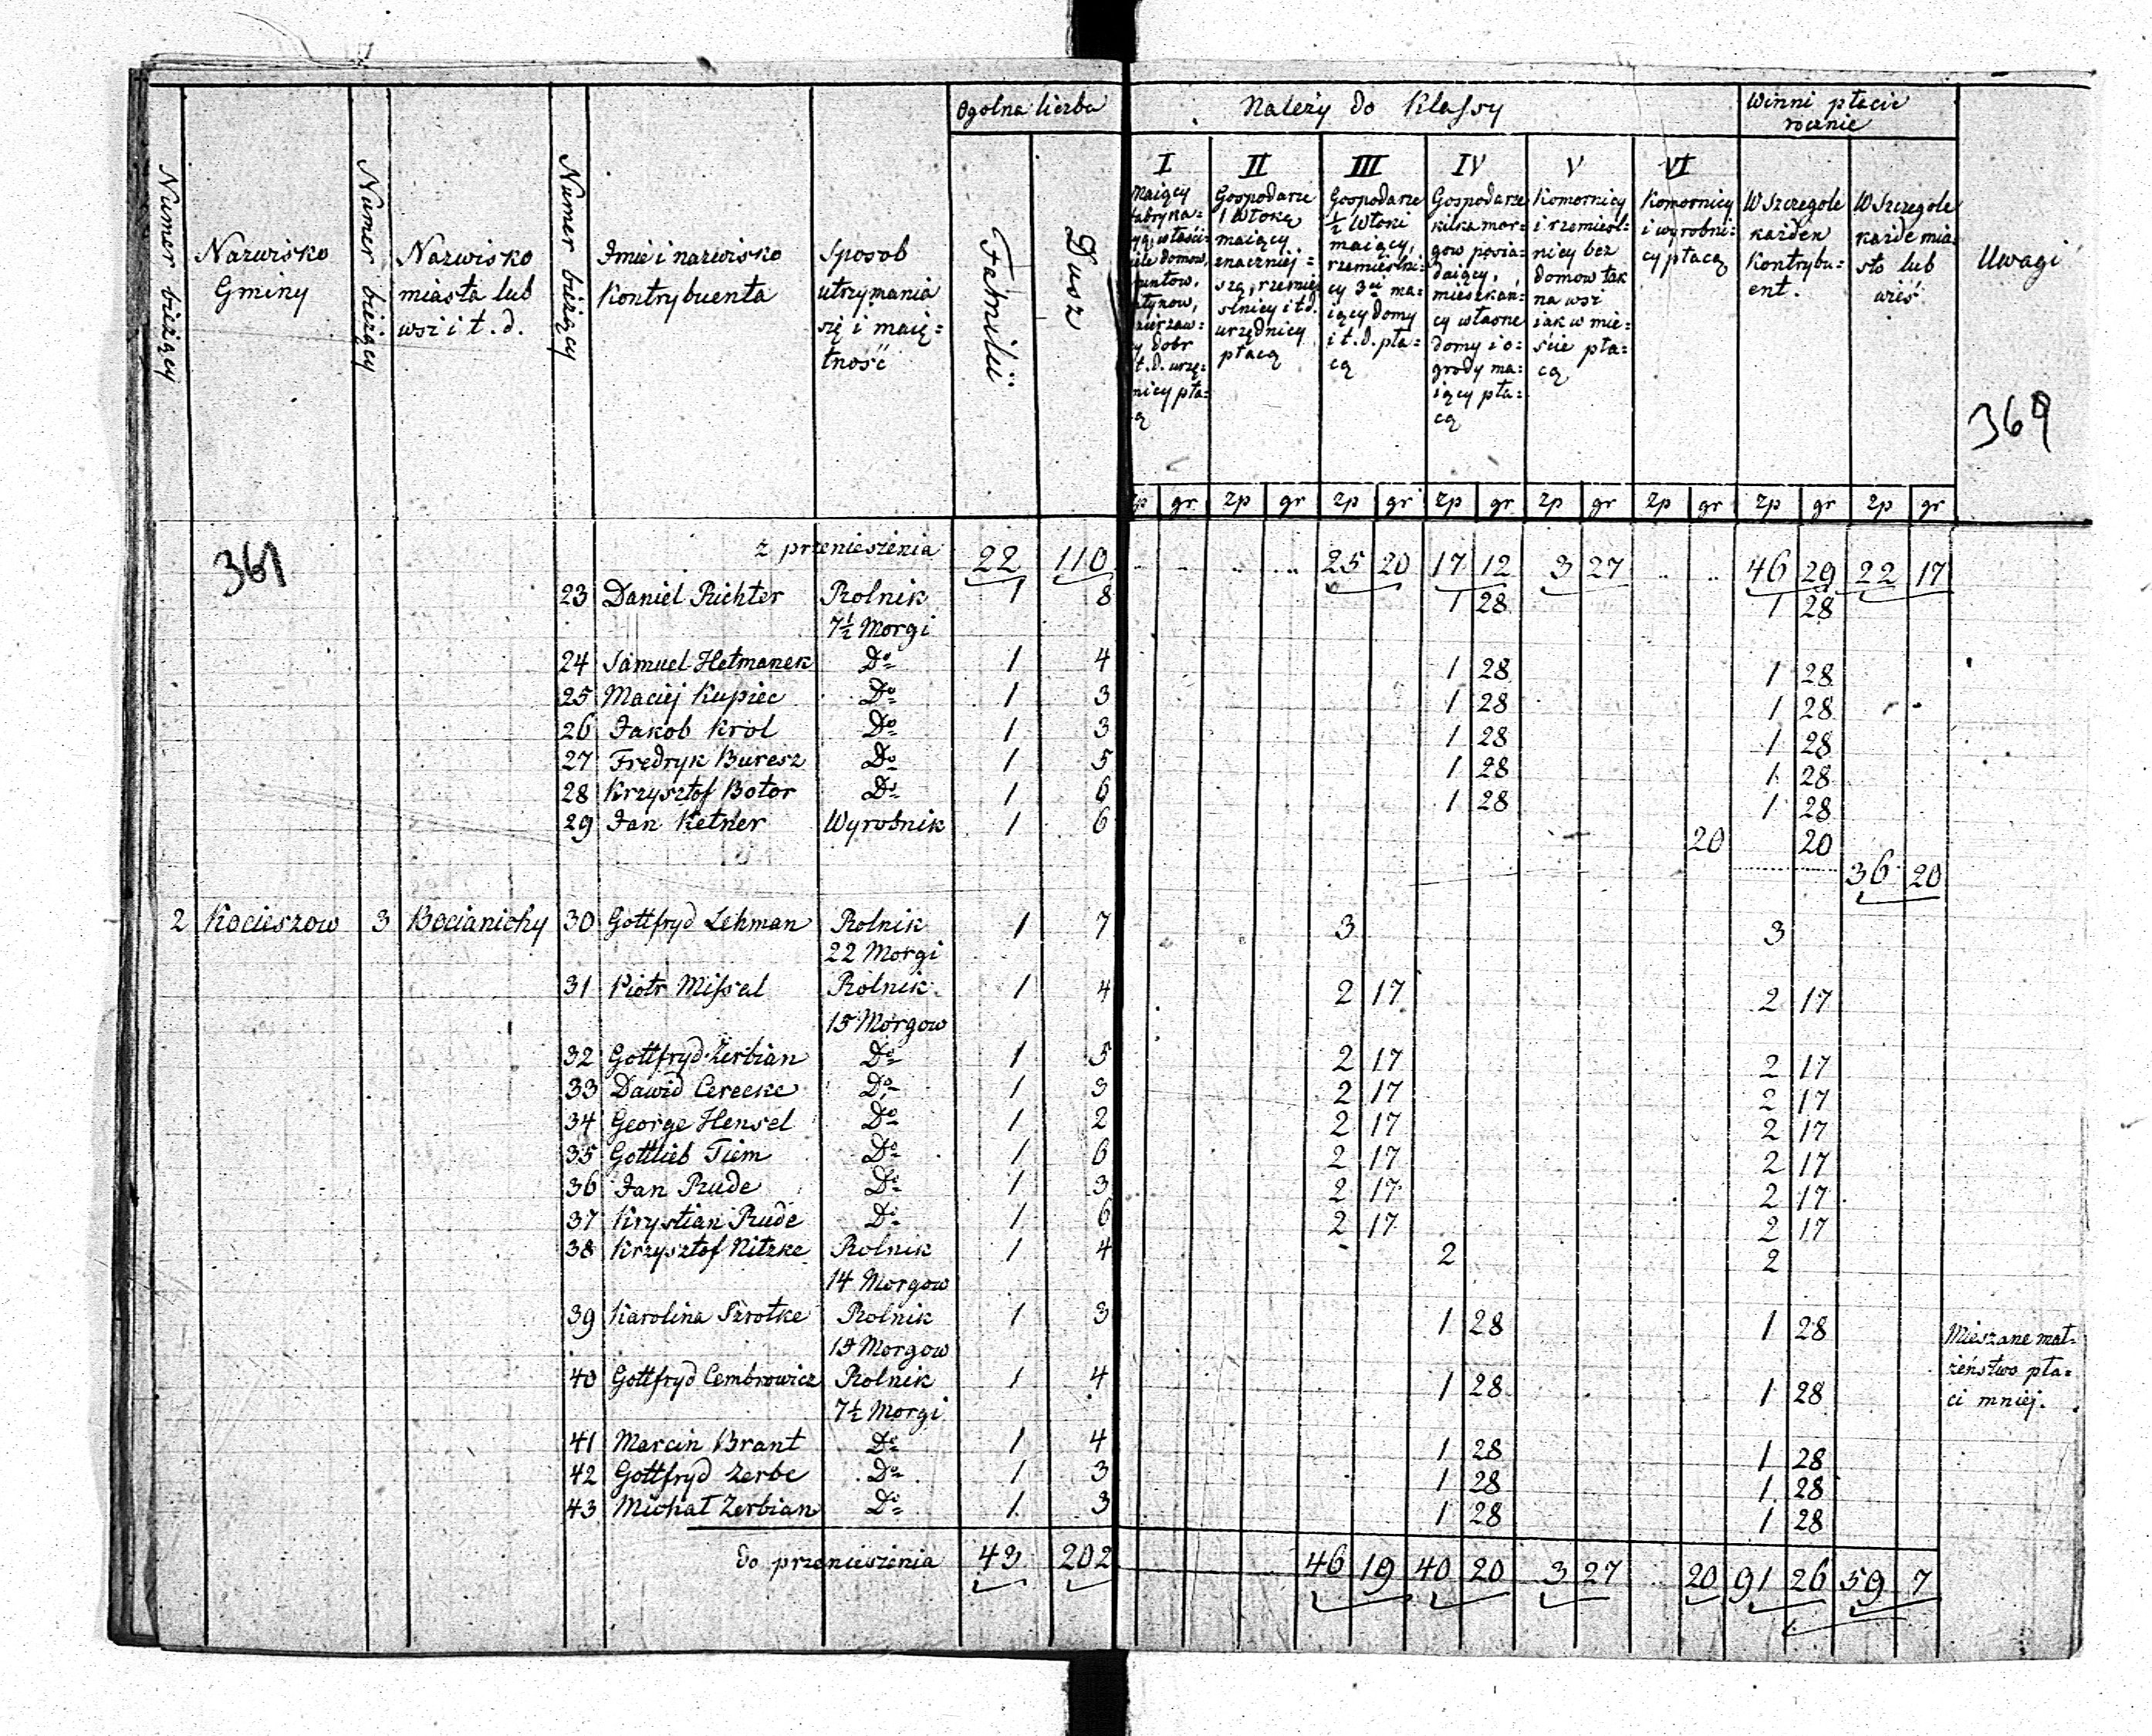 Ogolna liczba
Należy do Klassy
Winni płacić
rocznie
Numer bieżący
Nazwisko
Gminy
Numer bieżący
Nazwisko
miasta lub
wsi i t. d.
Numer bieżący
Imie i nazwisko
Kontrybuenta
Sposob
utrzymania
się i maię=
tność
Familii
Dusz
I
Maiący
fabryka=
domow,
dobr
t. d. urzę=
nicy pła=
ą
II
Gospodarze
1 Włokę
maiący
znaczniej=
szą, rzemie
slnicy i t d.
urzędnicy
płacą
III
Gospodarze
½ Włoki
maiący,
rzemieślni=
cy 3ci ma=
iący domy
i t. d. pła=
cą
IV
Gospodarze
kilka mor=
gow posia=
daiący,
mieszkań=
cy własne
domy i o=
grody ma=
iący pła=
cą
V
Komornicy
i rzemieśl=
nicy bez
domow tak
na wsi
iak w mie=
ście pła=
cą
VI
Komornicy
i wyrobni=
cy płacą
W szczegole
każden
Kontrybu=
ent.
W szczegole
każde mia=
sto lub
wieś
Uwagi
369
zp gr zp gr zp gr zp gr zp gr zp gr zp gr zp gr
361
z przenieszenia 22 110 25 20 17 12 3 27 46 29 22 17
23 Daniel Richter Rolnik 1 8 1 28 1 28
7½ Morgi
24 Samuel Hetmanek Do 1 4 1 28 1 28
25 Maciej Kupiec Do 1 3 1 28 1 28
26 Jakob Krol Do 1 3 1 28 1 28
27 Fredryk Buresz Do 1 5 1 28 1 28
28 Krzysztof Botor Do 1 6 1 28 1 28
29 Jan Ketner Wyrobnik 1 6 20 20
36 20
2 Kocieszow 3 Bocianichy 30 Gottfryd Lehman Rolnik 1 7 3 3
22 Morgi
31 Piotr Missal Rolnik 1 4 2 17 2 17
15 Morgow
32 Gottfryd Zerbian Do 1 5 2 17 2 17
33 Dawid Cerecke Do 1 3 2 17 2 17
34 George Hensel Do 1 2 2 17 2 17
35 Gottlieb Tiem Do 1 6 2 17 2 17
36 Jan Rude Do 1 3 2 17 2 17
37 Krystian Rude Do 1 6 2 17 2 17
38 Krzysztof Nitzke Rolnik 1 4 2 2
14 Morgow
39 Karolina Szrotke Rolnik 1 3 1 28 1 28 Mieszane mał=
Morgow żeństwo pła=
40 Gottfryd Cembrowicz Rolnik 1 4 1 28 1 28 ci mniej.
7½ Morgi
41 Marcin Brant Do 1 4 1 28 1 28
42 Gottfryd Zerbe Do 1 3 1 28 1 28
43 Michał Zerbian Do 1 3 1 28 1 28
do przenieszenia 43 202 46 19 40 20 3 27 20 91 26 59 7